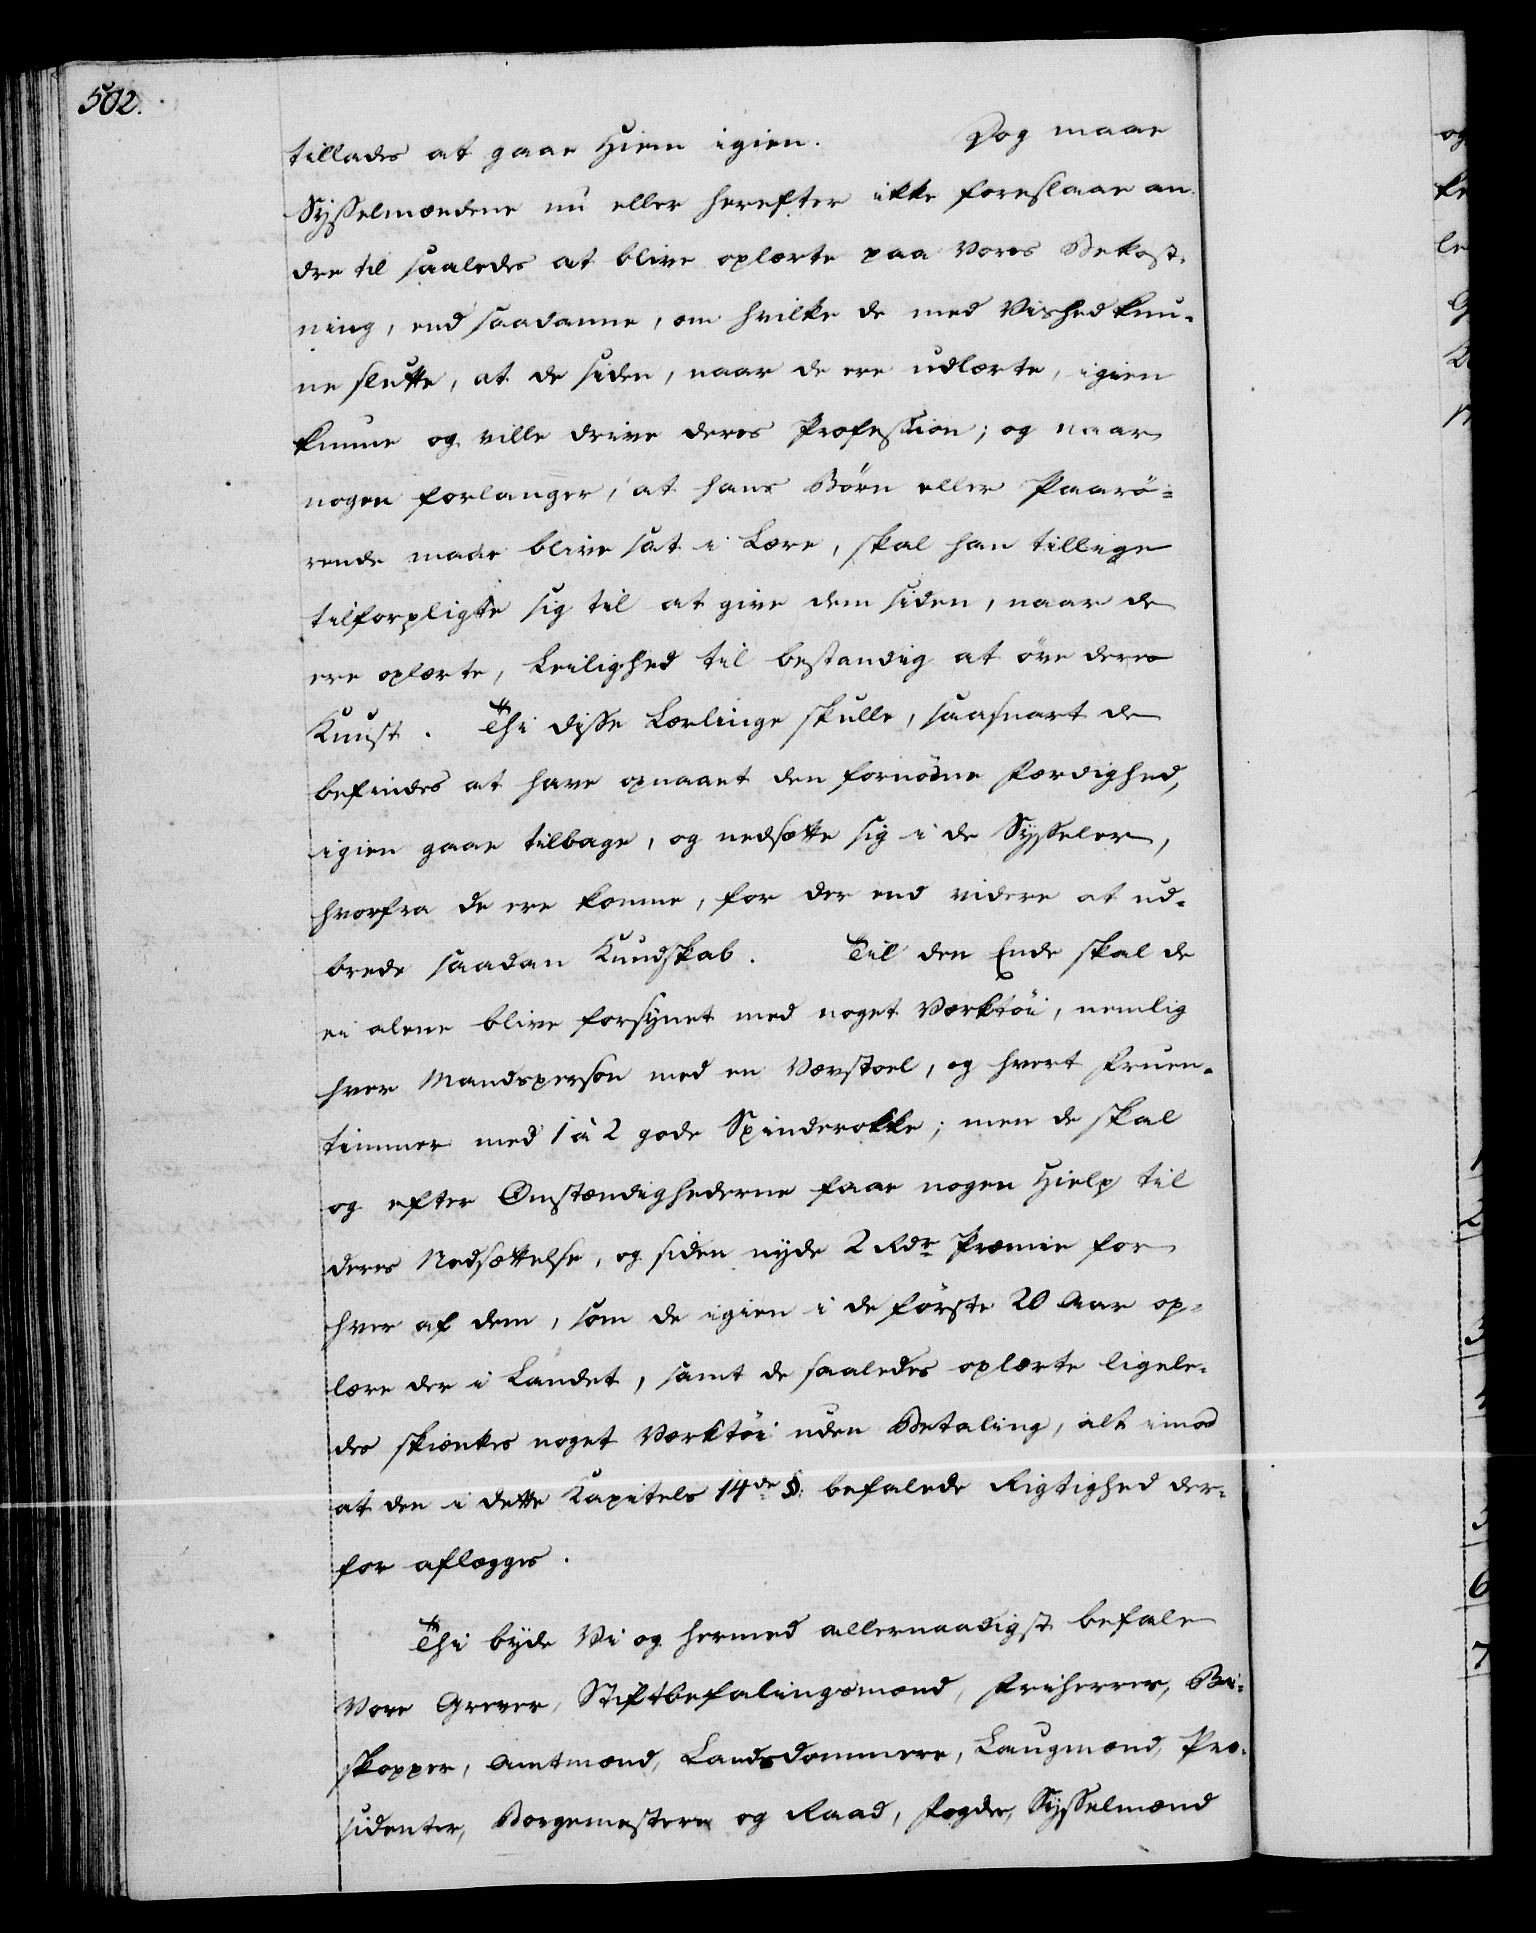 502.
tillades at gaae Hiem igien. Dog maae
Sysselmændene nu eller herefter ikke foreslaae an-
dre til saaledes at blive oplærte paa Vores Bekost-
ning, end saadanne, om hvilke de med Vished kun-
ne slutte, at de siden, naar de ere udlærte, igien
kunne og ville drive deres Profession; og naar
nogen forlanger, at hans Börn eller Paarö-
rende maae blive sat i Lære, skal han tillige
tilforpligte sig til at give dem siden, naar de
ere oplærte, Leilighed til bestandig at öve deres
Kunst. Thi disse Lærlinge skulle, saasnart de
befindes at have opnaaet den fornödne Færdighed,
igien gaae tilbage, og nedsætte sig i de Sysseler,
hvorfra de ere komne, for der end videre at ud-
brede saadan Kundskab. Til den Ende skal de
ei alene blive forsynet med noget Værktöi, nemlig
hver Mandsperson med en Vævstoel, og hvert Fruen-
timmer med 1 à 2 gode Spinderokke; men de skal
og efter Omstændighederne faae nogen Hielp til
deres Nedsættelse, og siden nyde 2 Rdr Præmie for
hver af dem, som de igien i de förste 20 Aar op-
lære der i Landet, samt de saaledes oplærte ligele-
des skienkes noget Værktöi uden Betaling, alt imod
at den i dette Kapitels 14de §. befalede Rigtighed der-
for aflægges.
Thi byde Vi og hermed allernaadigst befale
Vore Grever, Stiftbefalingsmænd, Friherrer, Bi-
skopper, Amtmænd, Landsdommere, Laugmænd, Præ-
sidenter, Borgemestere og Raad, Fogder, Sysselmænd